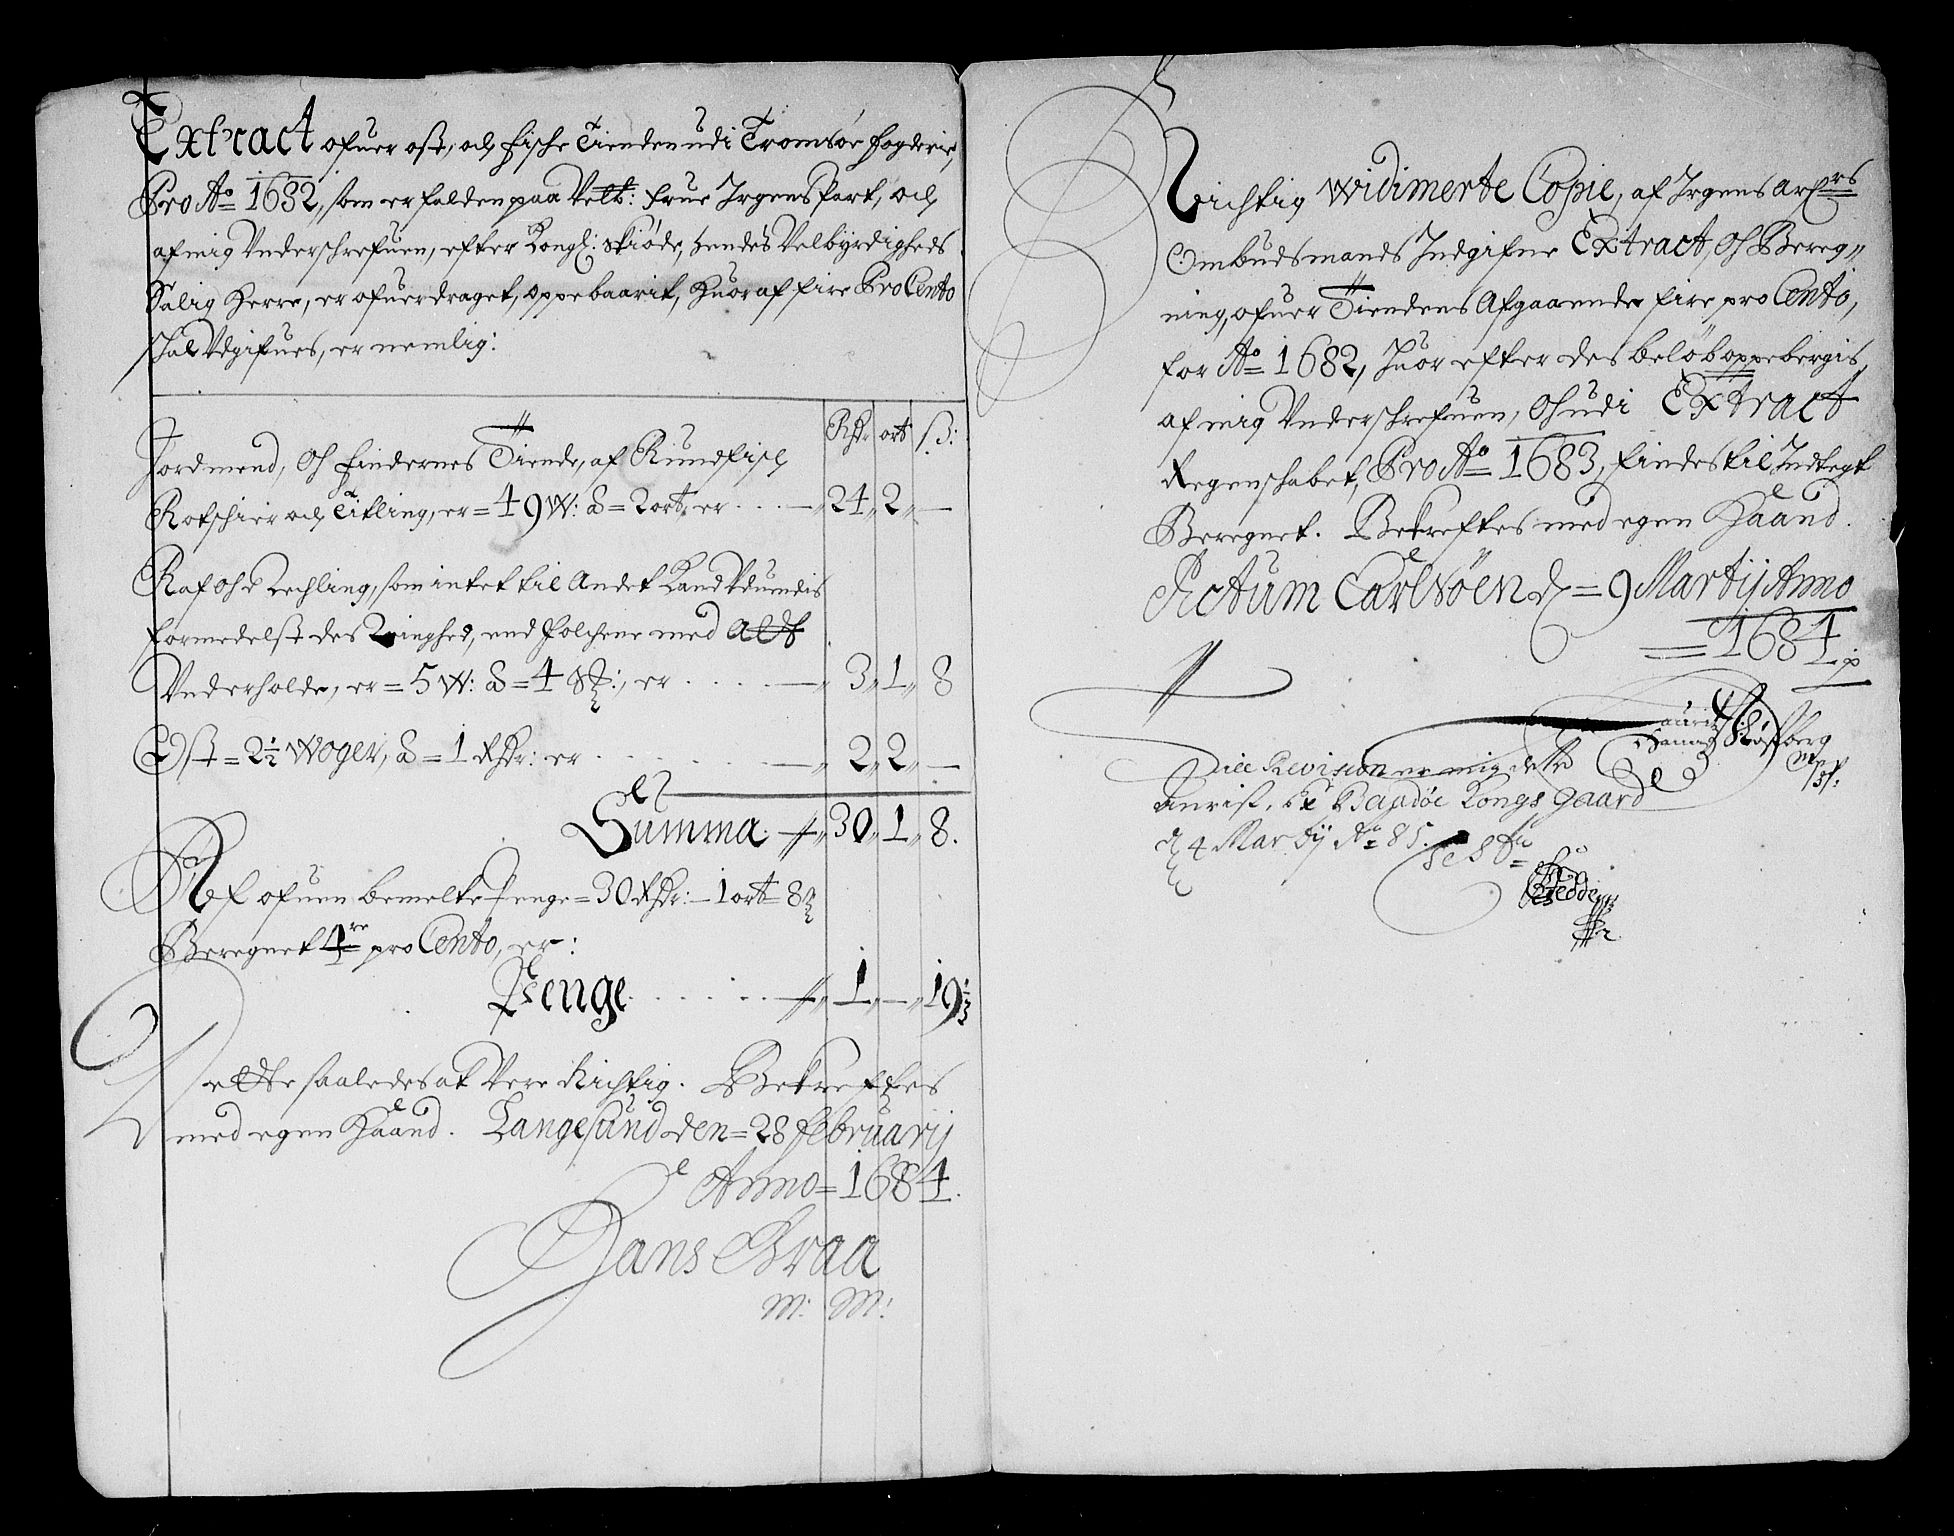 Extract ofuer ost, och fische Tienden udi Tromsöe fogderie,
Pro Ao 1682, som er falden paa Velb: frue Irgens Part, och
af mig Underschrefuen, efter Kongl: skiöde, hendes Velbyrdigheds
Salig Herre, er ofuerdraget, oppebaarit, Huoraf fire Pro Cento
schal Udgifues, er nemlig:
Rdr ort ß:
Jordmend, Oh findernes Tiende, af Rundfisch,
Rotschier och Titling, er = 49 W: à = 2 ort, er . . . — 24 „ 2 „ —
Raf Oh Rechling, som intet til Andet Land Udundis
formedelst des Ringhed, end folchene med Aldt
Underholde, er = 5 W: à = 4 ß:, er . . . . — 3 „ 1 „ 8
Ost = 2½ Woger, à = 1 Rdr: er . . . . . — 2 „ 2 „ —
Summa — 30 „ 1 „ 8.
Af ofuen bemelte Penge = 30 Rdr: — 1 ort = 8 ß
Beregnet 4re pro Cento, er:
Penge . . . . . . — 1 „ — „ 19½
Dette saaledes at Vere Richtig. Bekreftes
med egen Haand. Langesund den = 28 februarij
Anno = 1684.
Hans Braa
m: m:
Richtig Widimerte Copie, af Irgens Arfvers
Ombudsmands Indgifne Extract, Oh Bereg„
ning, ofuer Tiendens Afgaaende fire pro Cento,
for Ao 1682, Huor efter des belöb oppebergis
af mig Underschrefuen, Oh udi Extract
Regenschabet, Pro Ao 1683, findes til Indtegt
Beregnet. Bekreftes med egen Haand.
Actum Carlsöen d = 9 Martij Anno
= 1684
Till Revision er mig dette
Ao 85.